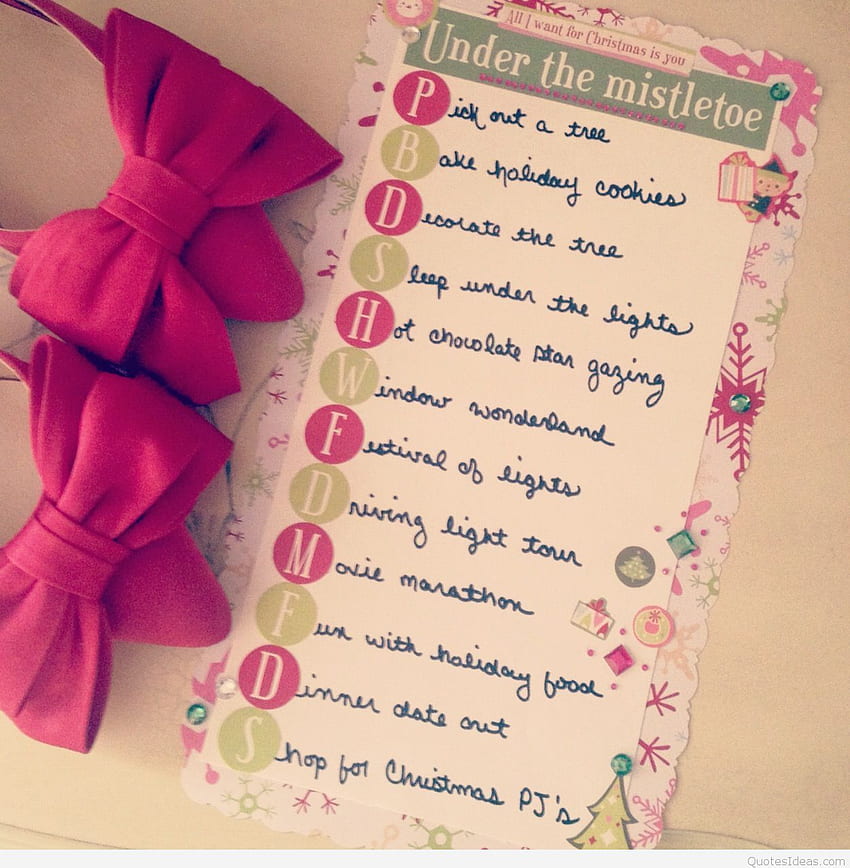 All I want for Christmas is you
Under the mistletoe
Pick out a tree
Bake holiday cookies
Decorate the tree
Sleep under the lights
Hot chocolate star gazing
Window wonderland
Festival of lights
Driving light tour
Movie marathon
Fun with holiday food
Dinner date out
Shop for Christmas PJ's
QuotesIdeas.com